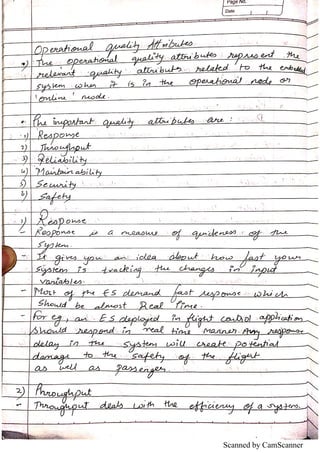 Page No.
Date
Operational quality Attributes
The operational quality attributes represent the
relevant quality attributes related to the embedded
system when it is in the operational mode or
'online' mode.
The important quality attributes are :
1) Response
2) Throughput
3) Reliability
4) Maintainability
5) Security
6) Safety
1) Response
- Response is a measure of quickness of the
system.
- It gives you an idea about how fast your
system is tracking the changes in input
variables.
- Most of the ES demand fast response which
should be almost Real Time.
- For eg, an ES deployed in flight control application
should respond in real time manner. Any response
delay in the system will create potential
damage to the safety of the flight
as well as passenger.
2) Throughput
- Throughput deals with the efficiency of a system.
Scanned by CamScanner